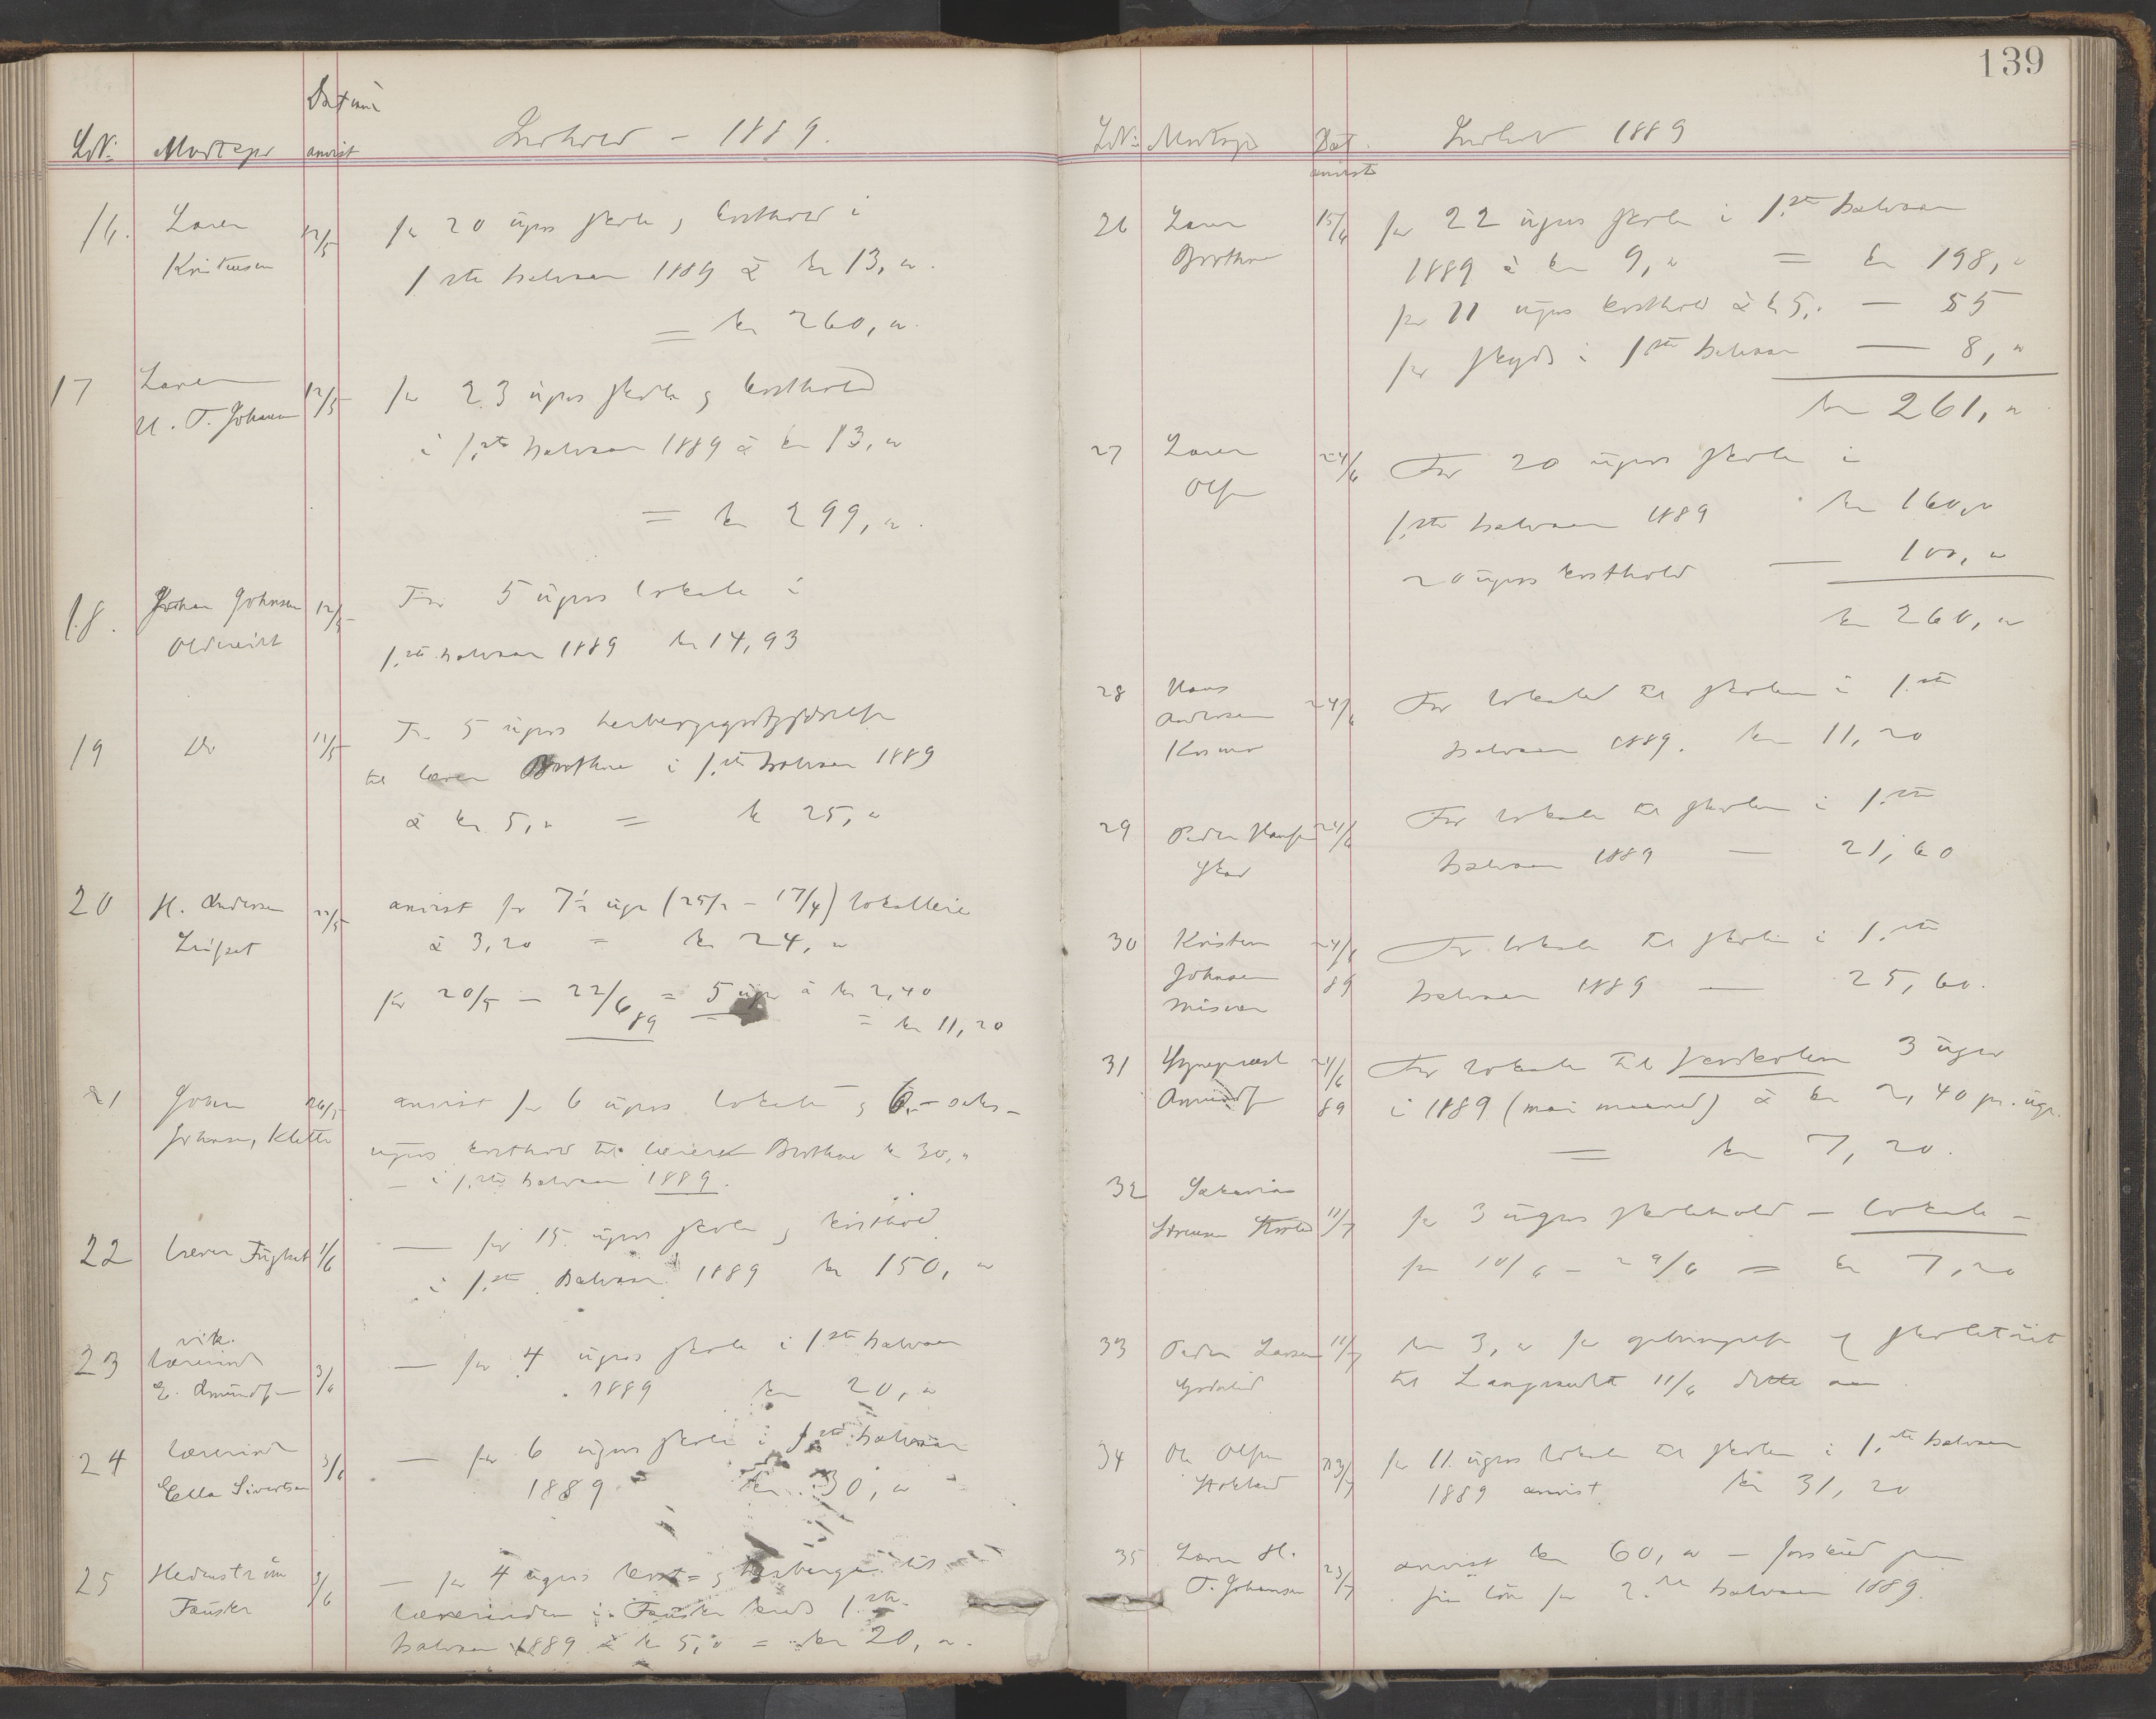 139
Datum
LN: Modtager anvist Indhold - 1889.
16. Lærer 12/5 for 20 ugers skole og kosthold i
Kristensen 1ste halvaar 1889 à kr 13, "
= kr 260, "
17 Lærer 12/5 for 23 ugers skole og kosthold
H. T. Johansen i 1.ste halvaar 1889 à kr 13, "
= kr 299, "
18. Johan Johnsen 12/5 For 5 ugers lokale i
Oldereidet 1.ste halvaar 1889 kr 14,93
19 Do 11/5 For 5 ugers
til lærer Brothue i 1.ste halvaar 1889
à kr 5, " = kr 25, "
20 H. Andersen 22/5 anvist for 7½ uge (25/2 - 17/4) lokalleie
Leifset à 3,20 = kr 24, "
for 20/5 - 22/6 89 = 5 uger à kr 2,40
= kr 11,20
21 Johan 26/5 anvist for 6 ugers lokale og 6 - seks -
Johnsen, Klette ugers kosthold til lærer Brothue kr 30, "
- i 1.ste halvaar 1889.
22 lærer Fugset 1/6 — for 15 ugers skole og kosthold
i 1.ste halvaar 1889 kr 150, "
vik.
23 lærerinde 3/6 — for 4 ugers skole i 1ste halvaar
E. Amundsen 1889 kr 20, "
24 lærerinde 3/6 — for 6 ugers skole i 1.ste halvaar
Ella Sivertsen 1889 kr 30, "
25 Hedenstrøm 3/6 — for 4 ugers kost= og herberge til
Fauske lærerinden i Fauske kreds 1.ste
halvaar 1889 à kr 5, " = kr 20, "
LN: Modtager Dat. Indhold 1889
anvist
26 Lærer 15/6 for 22 ugers skole i 1.ste halvaar
Brothue 1889 à kr 9, " = kr 198, "
for 11 ugers kosthold à kr 5, " — 55
for skyds i 1ste halvaar — 8, "
kr 261, "
27 Lærer 24/6 For 20 ugers skole i
Olsen 1.ste halvaar 1889 kr 160, "
20 ugers kosthold — 100, "
kr 260, "
28 Hans 24/6 For lokale til skolen i 1.ste
Andersen halvaar 1889. kr 11,20
Kosmo
29 Peder Hansen 24/6 For lokale til skolen i 1.ste
halvaar 1889 — 21,60
30 Kristen 24/6 For lokale til skolen i 1.ste
Johnsen 89 halvaar 1889 — 25,60.
Misvær
31 Sogneprest 24/6 For lokale til forskolen 3 uger
Amundsen 89 i 1889 (mai maaned) à kr 2,40 pr. uge.
= kr 7,20.
32 Sakarias
Sørensen 11/7 for 3 ugers skolehold - lokale -
fra 10/6 - 29/6 = kr 7,20
33 Peder Larsen 11/7 kr 3, " for af skoletøiet
til Langsædet 11/6 dette aar
34 Ole Olsen 23/7 for 11 ugers lokale til skolen i 1.ste halvaar
Stokland 1889 anvist kr 31,20
35 Lærer H. 23/7 anvist kr 60, " - forskud paa
T. Johansen sin løn for 2.det halvaar 1889.